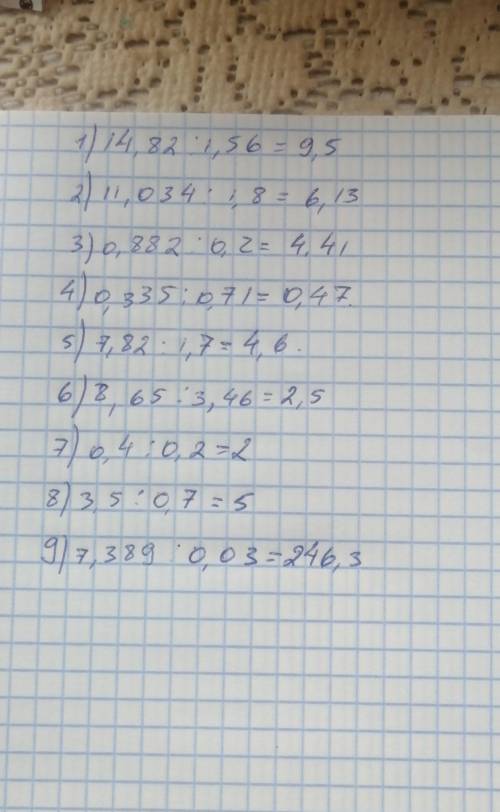 1) 14,82 : 1,56 = 9,5
2) 11,034 : 1,8 = 6,13
3) 0,882 : 0,2 = 4,41
4) 0,335 : 0,71 = 0,47.
5) 7,82 : 1,7 = 4,6.
6) 8,65 : 3,46 = 2,5
7) 0,4 : 0,2 = 2
8) 3,5 : 0,7 = 5
9) 7,389 : 0,03 = 246,3